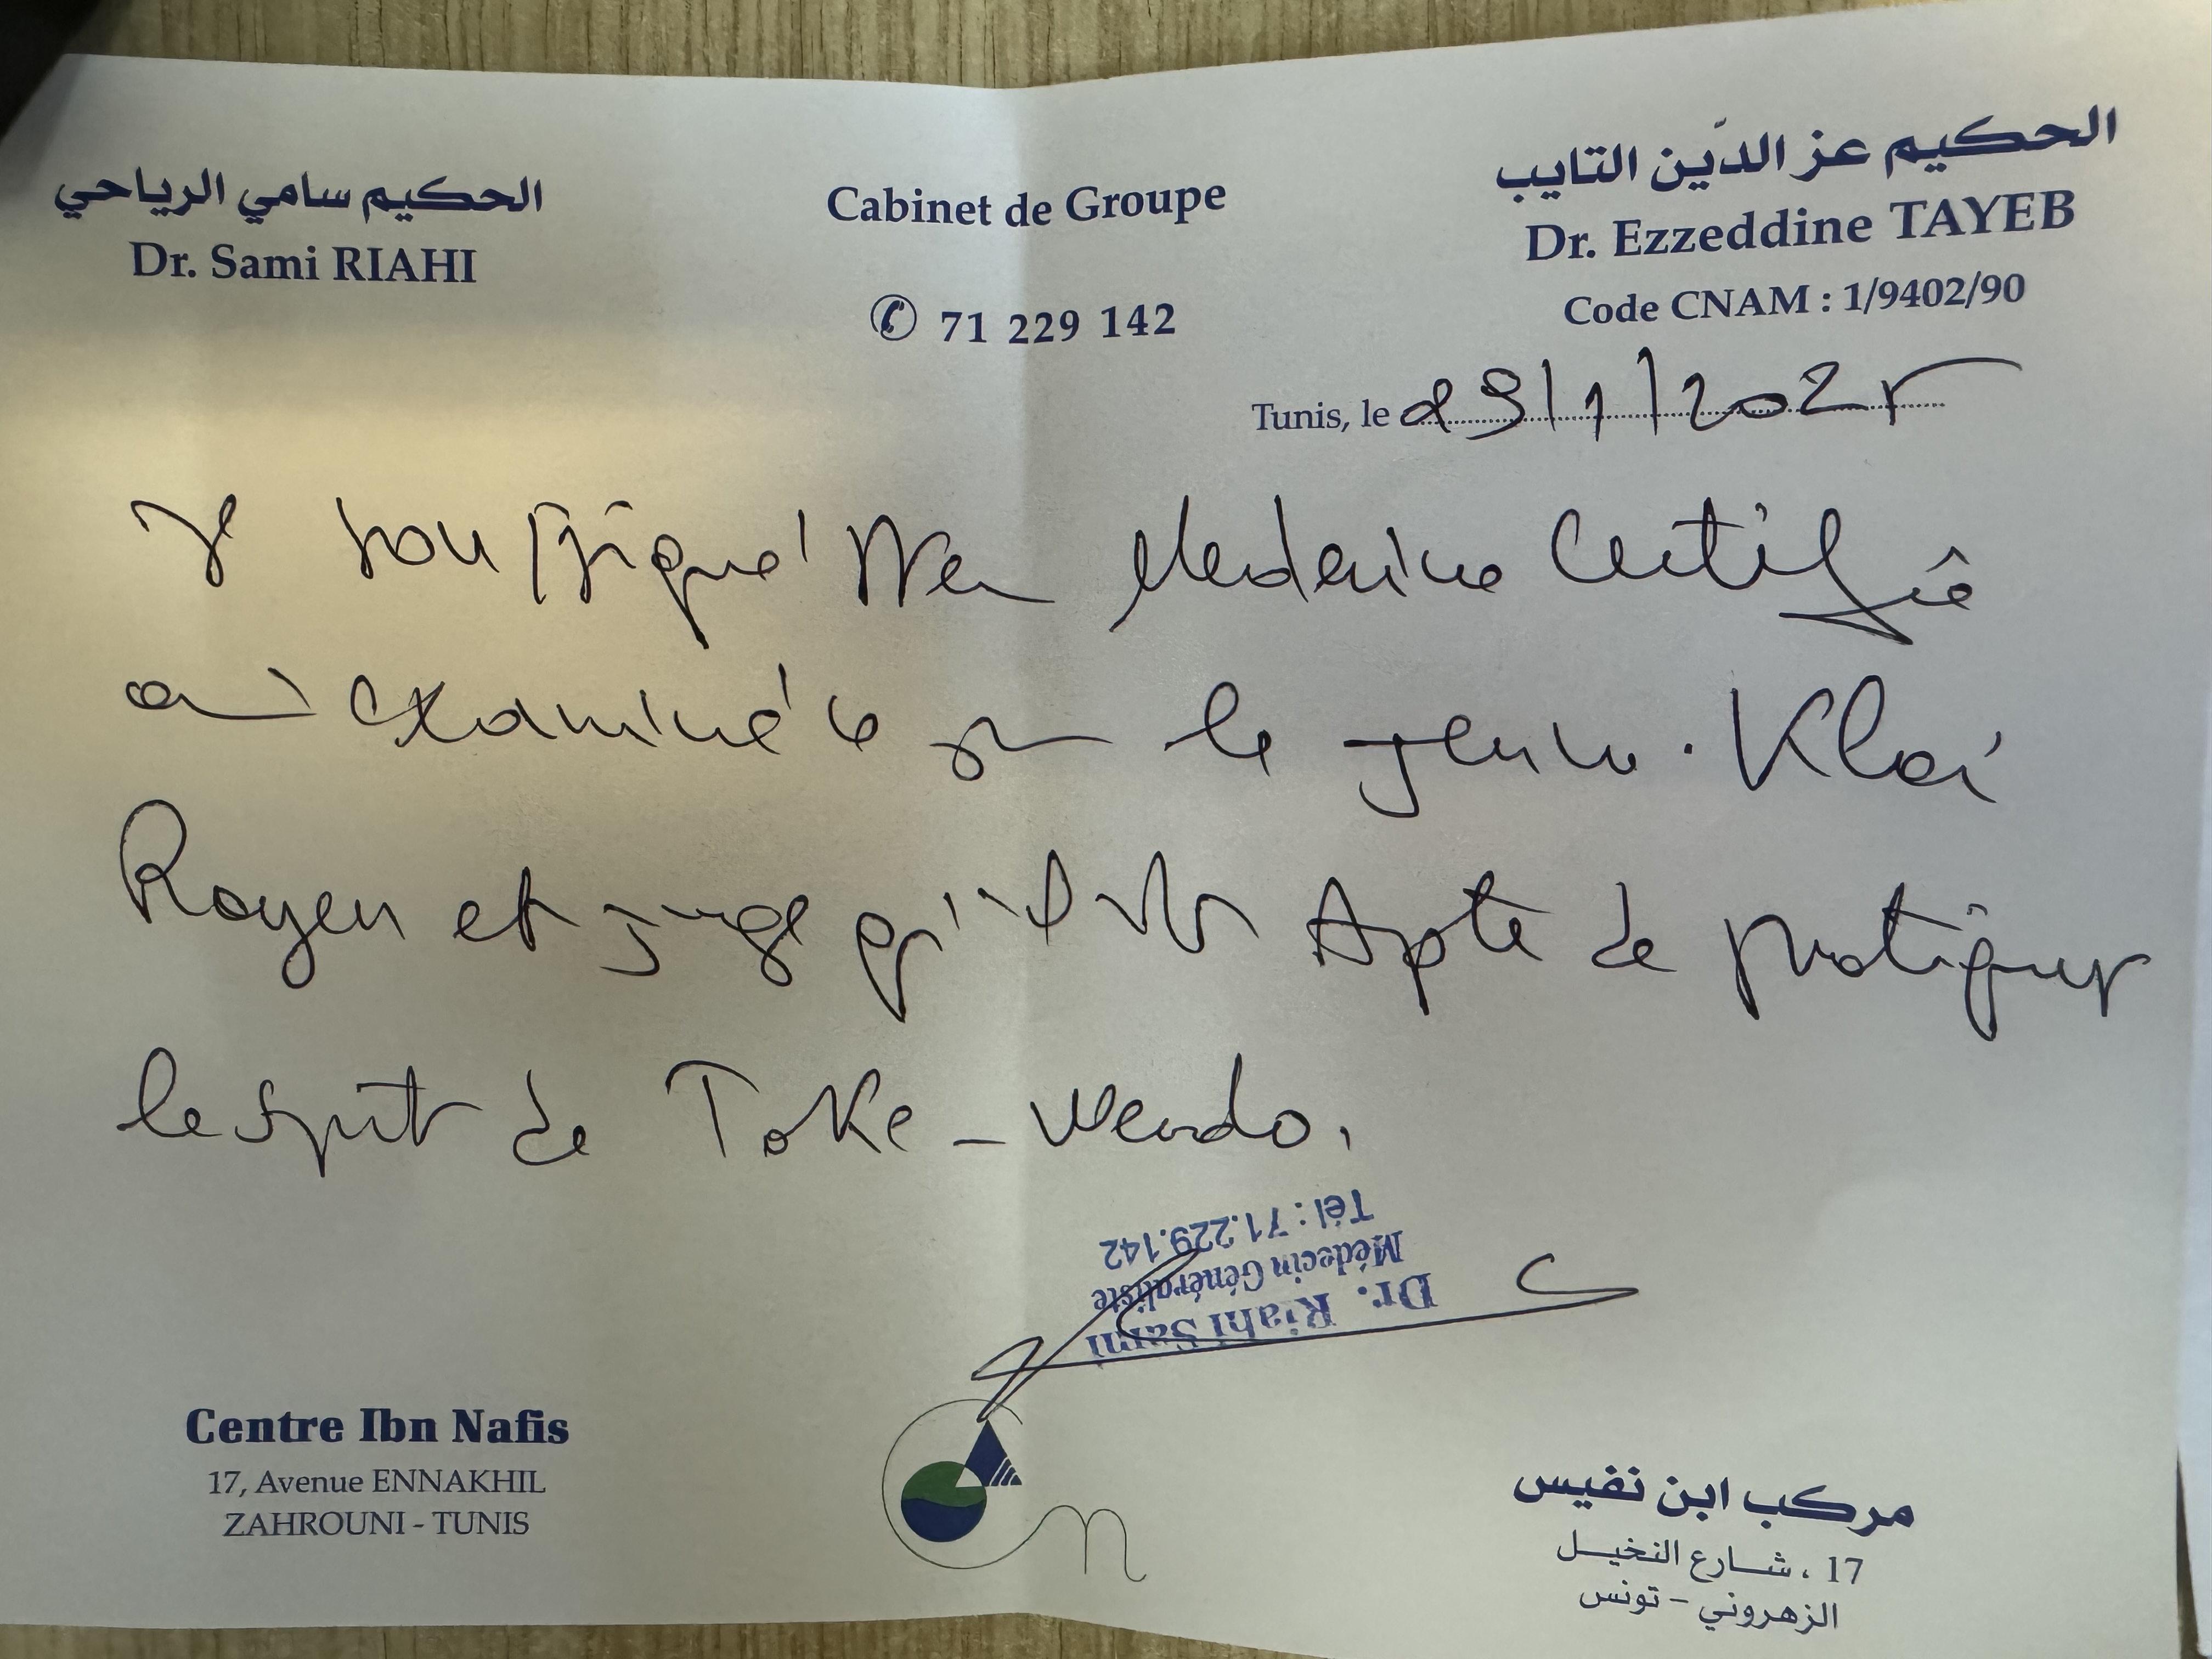 الحكيم سامي الرياحي
Dr. Sami RIAHI
Cabinet de Groupe
✆ 71 229 142
الحكيم عز الدّين التايب
Dr. Ezzeddine TAYEB
Code CNAM : 1/9402/90
Tunis, le 29/1/2025
Je soussigné Médecine Certifie
examiné le jeune. Klai
Rayen et juge qu'il est Apte de pratiquer
le sport de Take-Wendo.
Tél : 71.229.142
Médecin Généraliste
Dr. Riahi Sami
Centre Ibn Nafis
17, Avenue ENNAKHIL
ZAHROUNI - TUNIS
مركب ابن نفيس
17 ، شـارع النخيـل
الزهروني - تونس